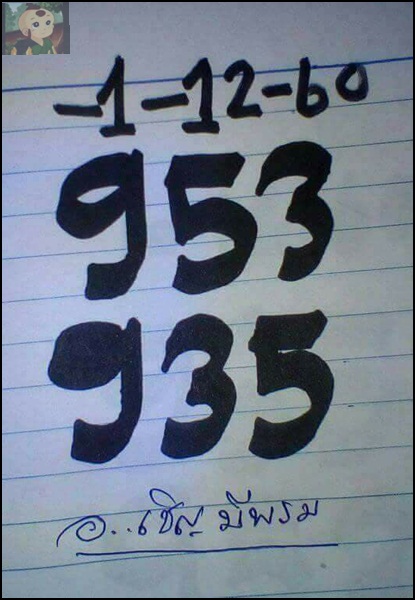 -1-12-60
953
935
อ..เชิญ มีพรม